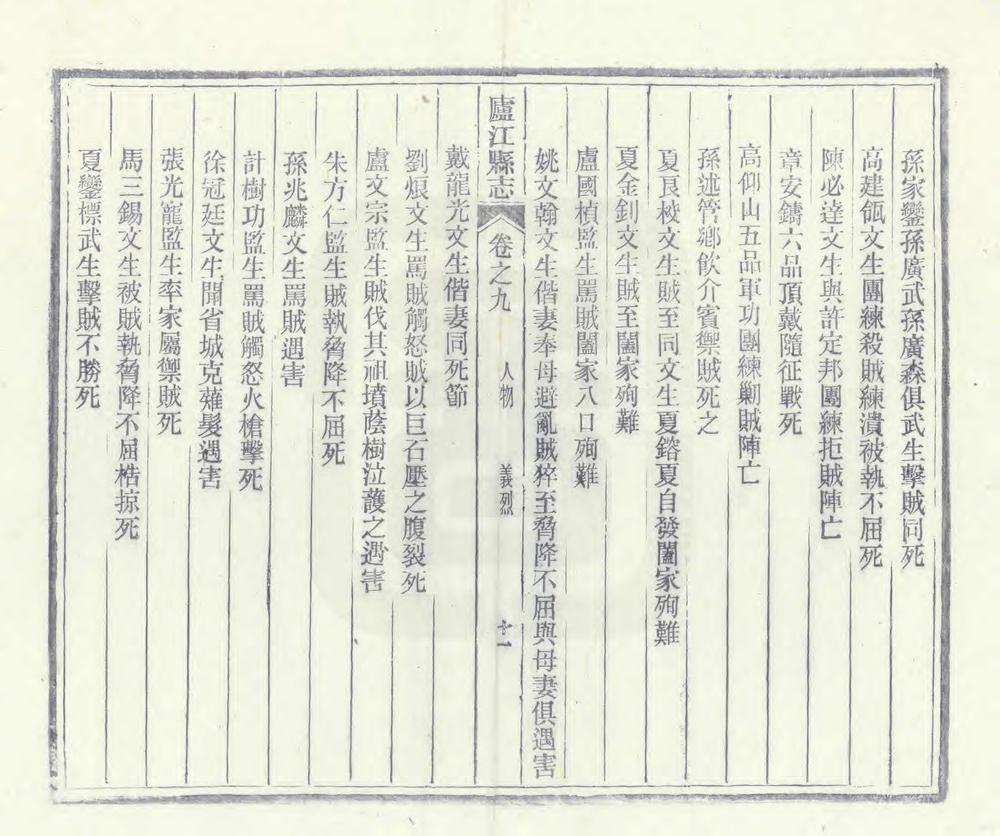 孫家鑾孫廣武孫廣森俱武生擊賊同死
高建瓴文生團練殺賊練潰被執不屈死
陳必達文生與許定邦團練拒賊陣亡
章安鑄六品頂戴隨征戰死
高仰山五品軍功團練勦賊陣亡
孫述管鄉飲介賓禦賊死之
夏良棱文生賊至同文生夏鎔夏自發闔家殉難
夏金釗文生賊至闔家殉難
盧國楨監生罵賊闔家八口殉難
姚文翰文生偕妻奉母避亂賊猝至脅降不屈與母妻俱遇害
廬江縣志 卷之九 人物 義烈 十一
戴龍光文生偕妻同死節
劉烺文生罵賊觸怒賊以巨石壓之腹裂死
盧文宗監生賊伐其祖墳蔭樹泣護之遇害
朱方仁監生賊執脅降不屈死
孫兆麟文生罵賊遇害
計樹功監生罵賊觸怒火槍擊死
徐冠廷文生聞省城克薙髮遇害
張光寵監生率家屬禦賊死
馬三錫文生被賊執脅降不屈梏掠死
夏鑾標武生擊賊不勝死